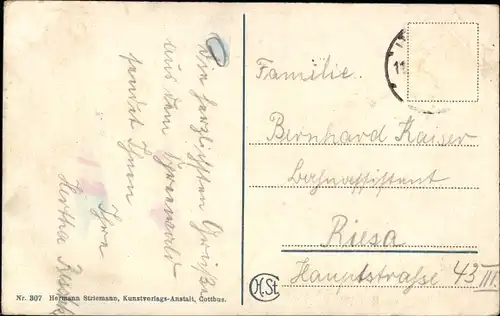 Die herzlichsten Grüße
aus dem Spreewald
sendet Ihnen
Ihre
Hertha
Familie.
Bernhard Kaiser
Bahnassistent
Riesa
Hauptstraße 43 III.
Nr. 307 Hermann Striemann, Kunstverlags-Anstalt, Cottbus.
H.St.
11